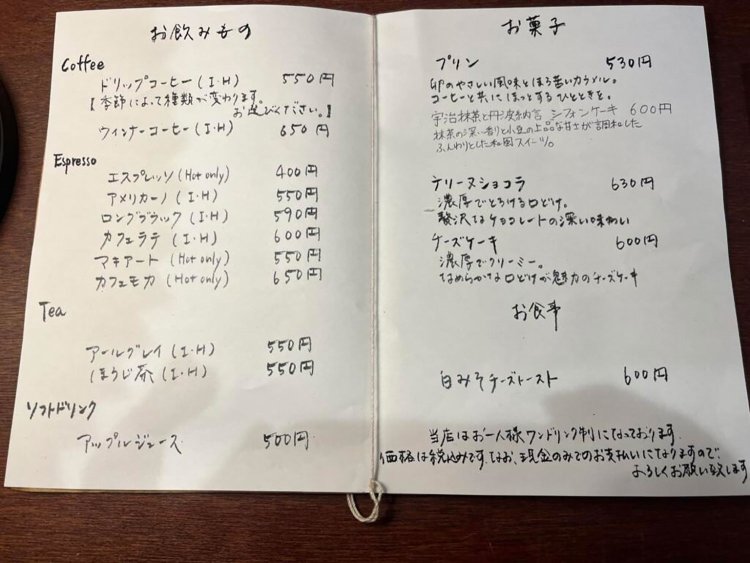 お飲みもの
Coffee
ドリップコーヒー(I・H) 550円
【季節によって種類が変わります。
お選びください。】
ウィンナーコーヒー(I・H) 650円
Espresso
エスプレッソ(Hot only) 400円
アメリカーノ(I・H) 550円
ロングブラック(I・H) 590円
カフェラテ(I・H) 600円
マキアート(Hot only) 550円
カフェモカ(Hot only) 650円
Tea
アールグレイ(I・H) 550円
ほうじ茶(I・H) 550円
ソフトドリンク
アップルジュース 500円
お菓子
プリン 530円
卵のやさしい風味とほろ苦いカラメル。
コーヒーと共にほっとするひとときを。
宇治抹茶と丹波納言 シフォンケーキ 600円
抹茶の深い香りと小豆の上品な甘さが調和した
ふんわりとした和風スイーツ。
テリーヌショコラ 630円
濃厚でとろける口どけ。
贅沢なチョコレートの深い味わい
チーズケーキ 600円
濃厚でクリーミー。
なめらかな口どけが魅力のチーズケーキ
お食事
白みそチーズトースト 600円
当店はお一人様ワンドリンク制になっております。
価格は税込みです。なお、現金のみでのお支払いになりますので、
よろしくお願い致します